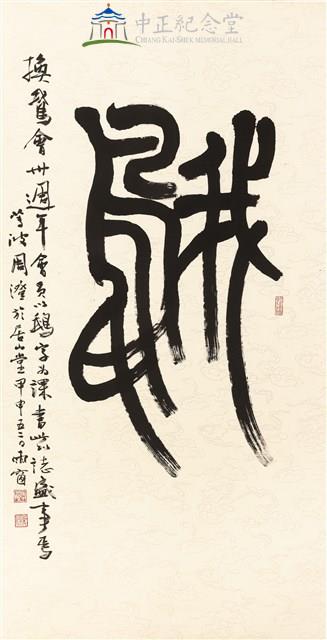 中正紀念堂
CHIANG KAI-SHEK MEMORIAL HALL
鵝
換鵞會卅週年會員以鵝字為課書此誌盛事焉
蓴波周澄於居山堂甲申五二日雨窗